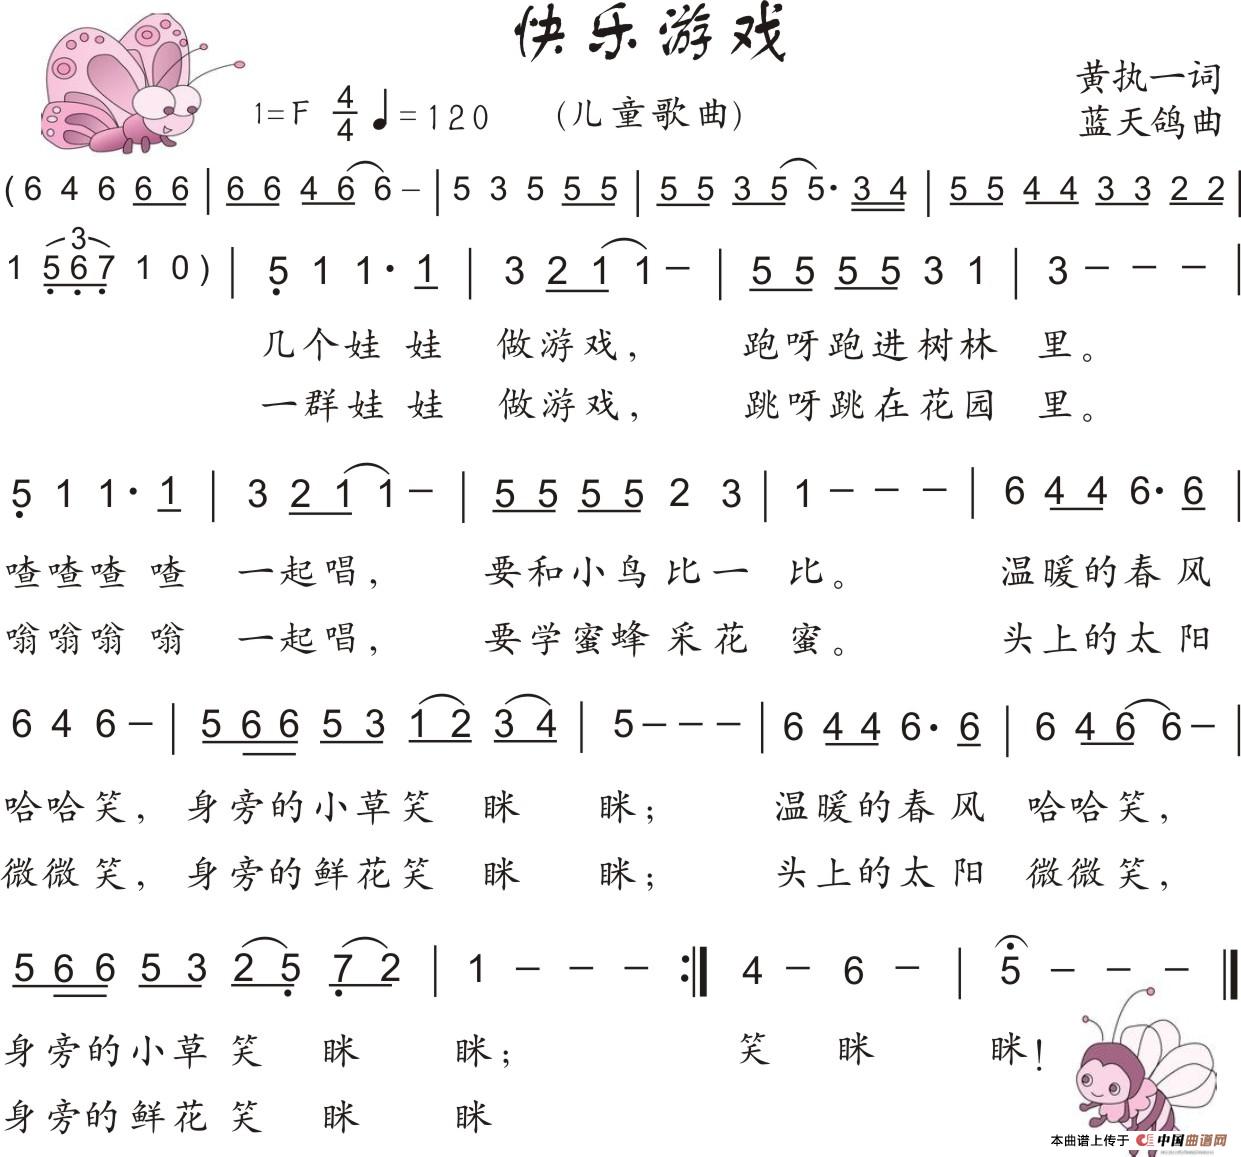 快乐游戏
黄执一词
1=F 4/4 ♩=120 (儿童歌曲)
蓝天鸽曲
(6 4 6 6 6 | 6 6 4 6 6 – | 5 3 5 5 5 | 5 5 3 5 5· 3 4 | 5 5 4 4 3 3 2 2 |
3
1 5 6 7 1 0) | 5 1 1· 1 | 3 2 1 1 – | 5 5 5 5 3 1 | 3 – – – |
几个娃娃 做游戏, 跑呀跑进树林 里。
一群娃娃 做游戏, 跳呀跳在花园 里。
5 1 1· 1 | 3 2 1 1 – | 5 5 5 5 2 3 | 1 – – – | 6 4 4 6· 6 |
喳喳喳喳 一起唱, 要和小鸟比一 比。 温暖的春风
嗡嗡嗡嗡 一起唱, 要学蜜蜂采花 蜜。 头上的太阳
6 4 6 – | 5 6 6 5 3 1 2 3 4 | 5 – – – | 6 4 4 6· 6 | 6 4 6 6 – |
哈哈笑, 身旁的小草笑 眯 眯; 温暖的春风 哈哈笑,
微微笑, 身旁的鲜花笑 眯 眯; 头上的太阳 微微笑,
5 6 6 5 3 2 5 7 2 | 1 – – – :‖ 4 – 6 – | 5 – – – ‖
身旁的小草笑 眯 眯; 笑 眯 眯!
身旁的鲜花笑 眯 眯
本曲谱上传于 中国曲谱网